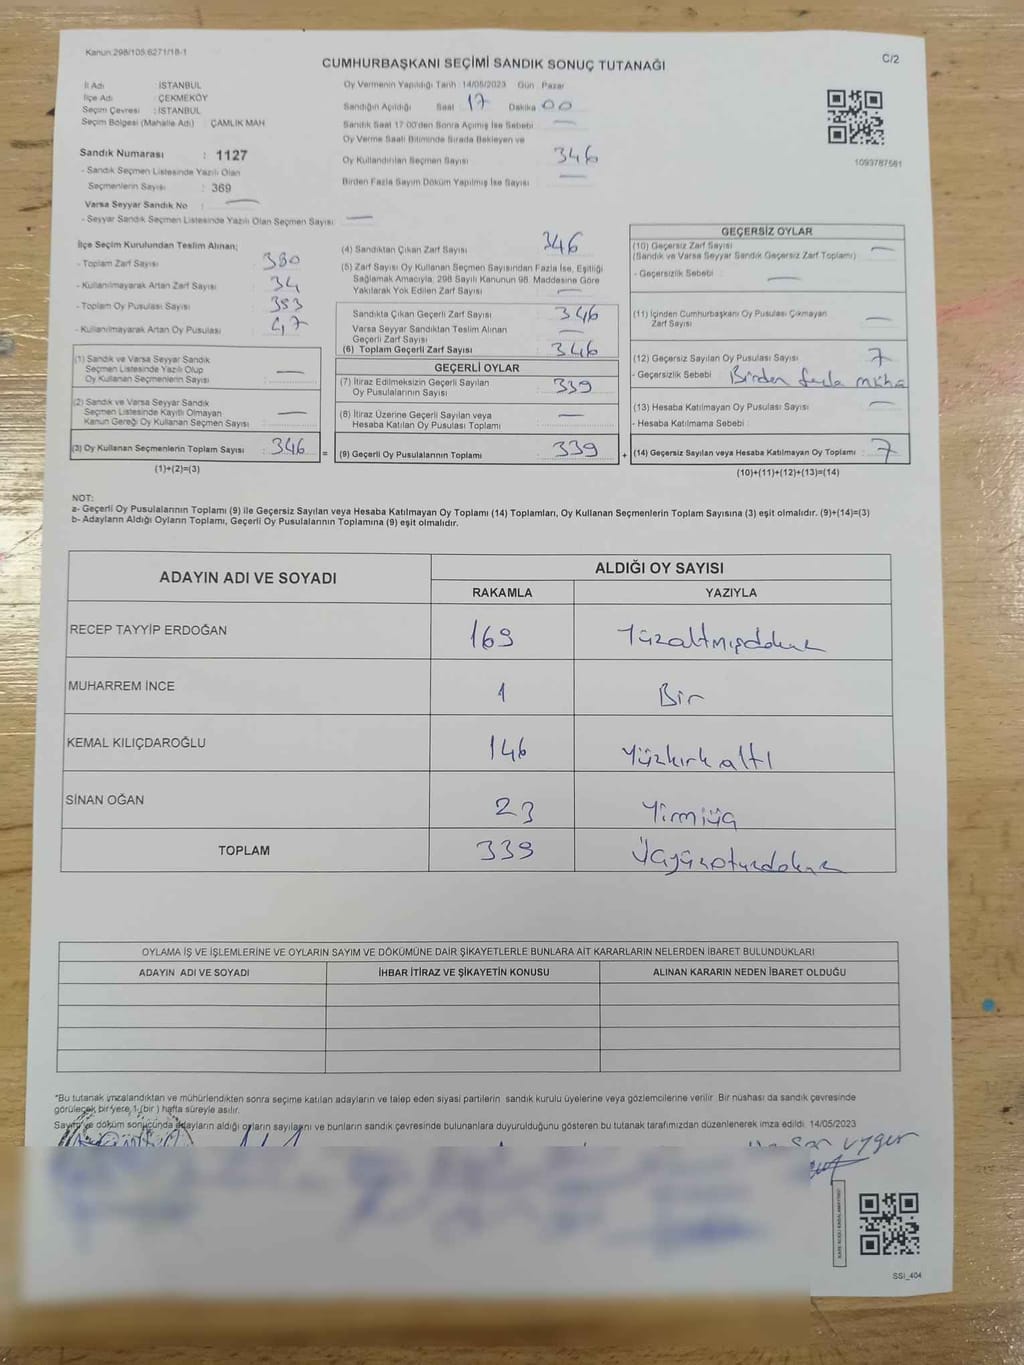 Kanun.298/105,6271/18-1
C/2
CUMHURBAŞKANI SEÇİMİ SANDIK SONUÇ TUTANAĞI
İl Adı : İSTANBUL
İlçe Adı : ÇEKMEKÖY
Seçim Çevresi : İSTANBUL
Seçim Bölgesi (Mahalle Adı) : ÇAMLIK MAH
Sandık Numarası : 1127
- Sandık Seçmen Listesinde Yazılı Olan
Seçmenlerin Sayısı : 369
Varsa Seyyar Sandık No : —
- Seyyar Sandık Seçmen Listesinde Yazılı Olan Seçmen Sayısı : —
Oy Vermenin Yapıldığı Tarih :14/05/2023 Gün : Pazar
Sandığın Açıldığı Saat : 17 Dakika : 00
Sandık Saat 17:00'den Sonra Açılmış İse Sebebi : —
Oy Verme Saati Bitiminde Sırada Bekleyen ve
Oy Kullandırılan Seçmen Sayısı : 346
Birden Fazla Sayım Döküm Yapılmış İse Sayısı : —
1093787581
İlçe Seçim Kurulundan Teslim Alınan;
- Toplam Zarf Sayısı : 380
- Kullanılmayarak Artan Zarf Sayısı : 34
- Toplam Oy Pusulası Sayısı : 393
- Kullanılmayarak Artan Oy Pusulası : 47
(1) Sandık ve Varsa Seyyar Sandık
Seçmen Listesinde Yazılı Olup
Oy Kullanan Seçmenlerin Sayısı : —
(2) Sandık ve Varsa Seyyar Sandık
Seçmen Listesinde Kayıtlı Olmayan
Kanun Gereği Oy Kullanan Seçmen Sayısı : —
(3) Oy Kullanan Seçmenlerin Toplam Sayısı : 346
(1)+(2)=(3)
(4) Sandıktan Çıkan Zarf Sayısı : 346
(5) Zarf Sayısı Oy Kullanan Seçmen Sayısından Fazla İse, Eşitliği
Sağlamak Amacıyla, 298 Sayılı Kanunun 98. Maddesine Göre
Yakılarak Yok Edilen Zarf Sayısı : —
Sandıkta Çıkan Geçerli Zarf Sayısı : 346
Varsa Seyyar Sandıktan Teslim Alınan
Geçerli Zarf Sayısı : —
(6) Toplam Geçerli Zarf Sayısı : 346
GEÇERLİ OYLAR
(7) İtiraz Edilmeksizin Geçerli Sayılan
Oy Pusulalarının Sayısı : 339
(8) İtiraz Üzerine Geçerli Sayılan veya
Hesaba Katılan Oy Pusulası Toplamı : —
= (9) Geçerli Oy Pusulalarının Toplamı : 339 +
GEÇERSİZ OYLAR
(10) Geçersiz Zarf Sayısı : —
(Sandık ve Varsa Seyyar Sandık Geçersiz Zarf Toplamı)
- Geçersizlik Sebebi : —
(11) İçinden Cumhurbaşkanı Oy Pusulası Çıkmayan
Zarf Sayısı : —
(12) Geçersiz Sayılan Oy Pusulası Sayısı : 7
- Geçersizlik Sebebi : Birden fazla mühür
(13) Hesaba Katılmayan Oy Pusulası Sayısı : —
- Hesaba Katılmama Sebebi :
(14) Geçersiz Sayılan veya Hesaba Katılmayan Oy Toplamı : 7
(10)+(11)+(12)+(13)=(14)
NOT:
a- Geçerli Oy Pusulalarının Toplamı (9) ile Geçersiz Sayılan veya Hesaba Katılmayan Oy Toplamı (14) Toplamları, Oy Kullanan Seçmenlerin Toplam Sayısına (3) eşit olmalıdır. (9)+(14)=(3)
b- Adayların Aldığı Oyların Toplamı, Geçerli Oy Pusulalarının Toplamına (9) eşit olmalıdır.
ADAYIN ADI VE SOYADI
ALDIĞI OY SAYISI
RAKAMLA YAZIYLA
RECEP TAYYİP ERDOĞAN 169 Yüzaltmışdokuz
MUHARREM İNCE 1 Bir
KEMAL KILIÇDAROĞLU 146 Yüzkırkaltı
SİNAN OĞAN 23 Yirmiüç
TOPLAM 339 Üçyüzotuzdokuz
OYLAMA İŞ VE İŞLEMLERİNE VE OYLARIN SAYIM VE DÖKÜMÜNE DAİR ŞİKAYETLERLE BUNLARA AİT KARARLARIN NELERDEN İBARET BULUNDUKLARI
ADAYIN ADI VE SOYADI İHBAR İTİRAZ VE ŞİKAYETİN KONUSU ALINAN KARARIN NEDEN İBARET OLDUĞU
*Bu tutanak imzalandıktan ve mühürlendikten sonra seçime katılan adayların ve talep eden siyasi partilerin sandık kurulu üyelerine veya gözlemcilerine verilir. Bir nüshası da sandık çevresinde
görülecek bir yere 1 (bir ) hafta süreyle asılır.
Sayım ve döküm sonucunda adayların aldığı oyların sayılarını ve bunların sandık çevresinde bulunanlara duyurulduğunu gösteren bu tutanak tarafımızdan düzenlenerek imza edildi. 14/05/2023
SSİ_404